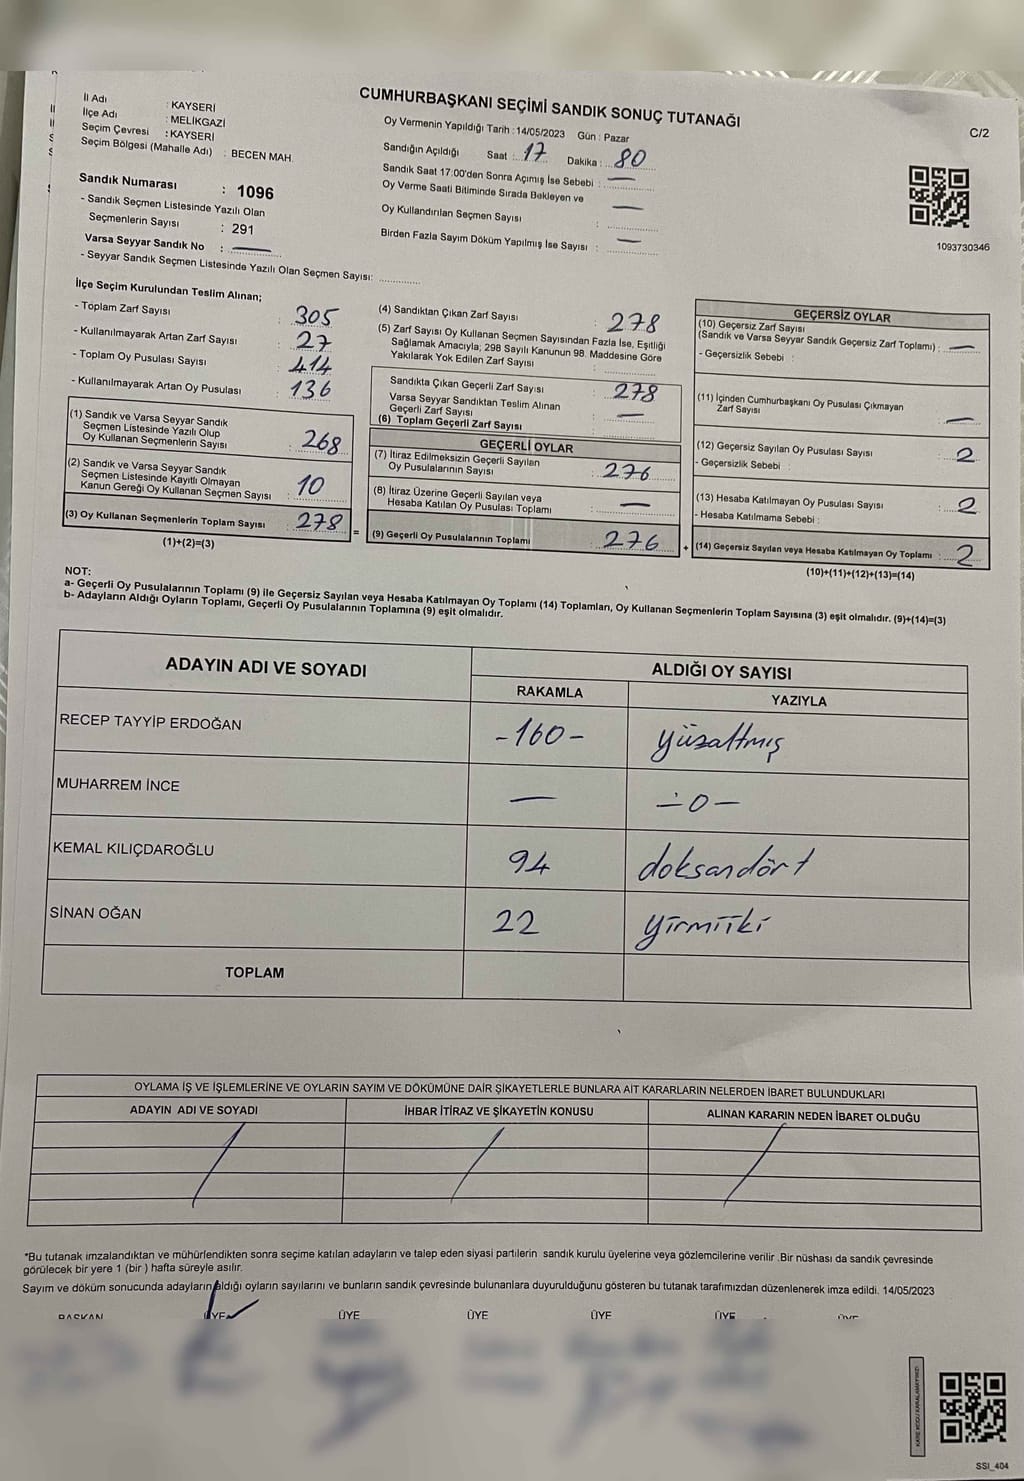 CUMHURBAŞKANI SEÇİMİ SANDIK SONUÇ TUTANAĞI
C/2
İl Adı : KAYSERİ
İlçe Adı : MELİKGAZİ
Seçim Çevresi : KAYSERİ
Seçim Bölgesi (Mahalle Adı) : BECEN MAH.
Sandık Numarası : 1096
- Sandık Seçmen Listesinde Yazılı Olan
Seçmenlerin Sayısı : 291
Varsa Seyyar Sandık No : —
- Seyyar Sandık Seçmen Listesinde Yazılı Olan Seçmen Sayısı:
Oy Vermenin Yapıldığı Tarih : 14/05/2023 Gün : Pazar
Sandığın Açıldığı Saat : 17 Dakika : 80
Sandık Saat 17:00'den Sonra Açımış İse Sebebi : —
Oy Verme Saati Bitiminde Sırada Bekleyen ve
Oy Kullandırılan Seçmen Sayısı : —
Birden Fazla Sayım Döküm Yapılmış İse Sayısı : —
1093730346
İlçe Seçim Kurulundan Teslim Alınan;
- Toplam Zarf Sayısı : 305
- Kullanılmayarak Artan Zarf Sayısı : 27
- Toplam Oy Pusulası Sayısı : 414
- Kullanılmayarak Artan Oy Pusulası : 136
(1) Sandık ve Varsa Seyyar Sandık
Seçmen Listesinde Yazılı Olup
Oy Kullanan Seçmenlerin Sayısı : 268
(2) Sandık ve Varsa Seyyar Sandık
Seçmen Listesinde Kayıtlı Olmayan
Kanun Gereği Oy Kullanan Seçmen Sayısı : 10
(3) Oy Kullanan Seçmenlerin Toplam Sayısı : 278
(1)+(2)=(3)
=
(4) Sandıktan Çıkan Zarf Sayısı : 278
(5) Zarf Sayısı Oy Kullanan Seçmen Sayısından Fazla İse, Eşitliği
Sağlamak Amacıyla; 298 Sayılı Kanunun 98. Maddesine Göre
Yakılarak Yok Edilen Zarf Sayısı :
Sandıkta Çıkan Geçerli Zarf Sayısı : 278
Varsa Seyyar Sandıktan Teslim Alınan
Geçerli Zarf Sayısı : —
(6) Toplam Geçerli Zarf Sayısı
GEÇERLİ OYLAR
(7) İtiraz Edilmeksizin Geçerli Sayılan
Oy Pusulalarının Sayısı : 276
(8) İtiraz Üzerine Geçerli Sayılan veya
Hesaba Katılan Oy Pusulası Toplamı : —
(9) Geçerli Oy Pusulalarının Toplamı : 276
+
GEÇERSİZ OYLAR
(10) Geçersiz Zarf Sayısı
(Sandık ve Varsa Seyyar Sandık Geçersiz Zarf Toplamı) : —
- Geçersizlik Sebebi :
(11) İçinden Cumhurbaşkanı Oy Pusulası Çıkmayan
Zarf Sayısı : —
(12) Geçersiz Sayılan Oy Pusulası Sayısı : 2
- Geçersizlik Sebebi :
(13) Hesaba Katılmayan Oy Pusulası Sayısı : 2
- Hesaba Katılmama Sebebi :
(14) Geçersiz Sayılan veya Hesaba Katılmayan Oy Toplamı : 2
(10)+(11)+(12)+(13)=(14)
NOT:
a- Geçerli Oy Pusulalarının Toplamı (9) ile Geçersiz Sayılan veya Hesaba Katılmayan Oy Toplamı (14) Toplamları, Oy Kullanan Seçmenlerin Toplam Sayısına (3) eşit olmalıdır. (9)+(14)=(3)
b- Adayların Aldığı Oyların Toplamı, Geçerli Oy Pusulalarının Toplamına (9) eşit olmalıdır.
ADAYIN ADI VE SOYADI
ALDIĞI OY SAYISI
RAKAMLA YAZIYLA
RECEP TAYYİP ERDOĞAN -160- yüzaltmış
MUHARREM İNCE — -0-
KEMAL KILIÇDAROĞLU 94 doksandört
SİNAN OĞAN 22 yirmiiki
TOPLAM
OYLAMA İŞ VE İŞLEMLERİNE VE OYLARIN SAYIM VE DÖKÜMÜNE DAİR ŞİKAYETLERLE BUNLARA AİT KARARLARIN NELERDEN İBARET BULUNDUKLARI
ADAYIN ADI VE SOYADI İHBAR İTİRAZ VE ŞİKAYETİN KONUSU ALINAN KARARIN NEDEN İBARET OLDUĞU
*Bu tutanak imzalandıktan ve mühürlendikten sonra seçime katılan adayların ve talep eden siyasi partilerin sandık kurulu üyelerine veya gözlemcilerine verilir .Bir nüshası da sandık çevresinde
görülecek bir yere 1 (bir ) hafta süreyle asılır.
Sayım ve döküm sonucunda adayların aldığı oyların sayılarını ve bunların sandık çevresinde bulunanlara duyurulduğunu gösteren bu tutanak tarafımızdan düzenlenerek imza edildi. 14/05/2023
BAŞKAN ÜYE ÜYE ÜYE ÜYE ÜYE ÜYE
KARE KODU KARALAMAYINIZ!
SSI_404